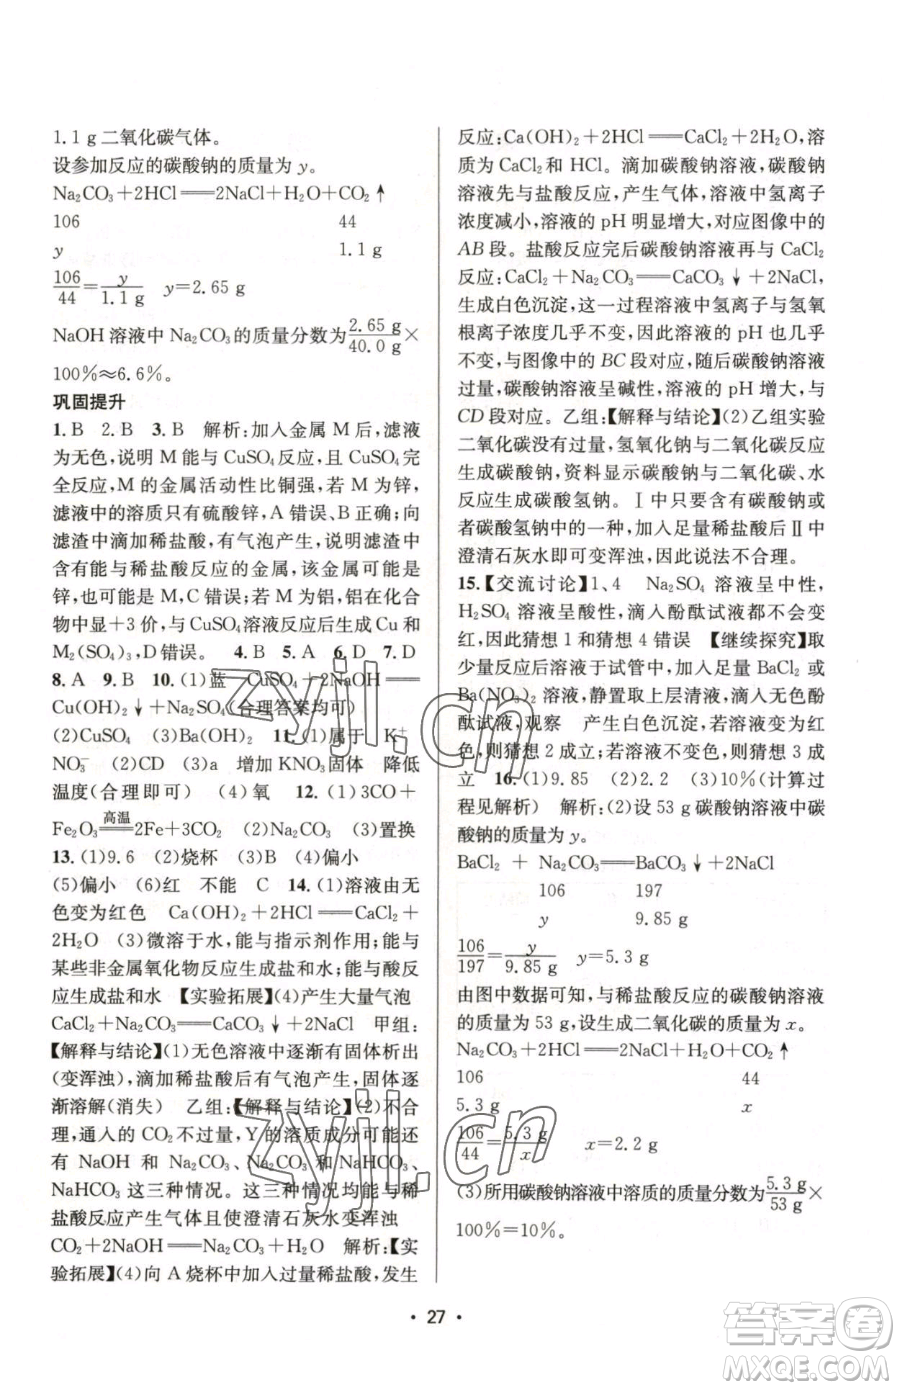 1.1 g二氧化碳气体。
设参加反应的碳酸钠的质量为 y。
Na₂CO₃+2HCl══2NaCl+H₂O+CO₂↑
106 44
y 1.1 g
106/44=y/1.1 g y=2.65 g
NaOH 溶液中 Na₂CO₃的质量分数为2.65 g/40.0 g×
100%≈6.6%。
巩固提升
1.B 2.B 3.B 解析:加入金属 M 后,滤液
为无色,说明 M 能与 CuSO₄反应,且 CuSO₄完
全反应,M 的金属活动性比铜强,若 M 为锌,
滤液中的溶质只有硫酸锌,A 错误、B 正确;向
滤渣中滴加稀盐酸,有气泡产生,说明滤渣中
含有能与稀盐酸反应的金属,该金属不一定是
锌,也可能是 M,C 错误;若 M 为铝,铝在化合
物中显+3 价,与 CuSO₄溶液反应后生成 Cu 和
M₂(SO₄)₃,D 错误。 4.B 5.A 6.D 7.D
8.A 9.B 10.(1)蓝 CuSO₄+2NaOH══
Cu(OH)₂↓+Na₂SO₄(合理答案均可)
(2)CuSO₄ (3)Ba(OH)₂ 11.(1)属于 K⁺
NO₃⁻ (2)CD (3)a 增加 KNO₃固体 降低
温度(合理即可) (4)氧 12.(1)3CO+
Fe₂O₃═高温═2Fe+3CO₂ (2)Na₂CO₃ (3)置换
13.(1)9.6 (2)烧杯 (3)B (4)偏小
(5)偏小 (6)红 不能 C 14.(1)溶液由无
色变为红色 Ca(OH)₂+2HCl══CaCl₂+
2H₂O (3)微溶于水,能与指示剂作用;能与
某些非金属氧化物反应生成盐和水;能与酸反
应生成盐和水 【实验拓展】(4)产生大量气泡
CaCl₂+Na₂CO₃══CaCO₃↓+2NaCl 甲组:
【解释与结论】(1)无色溶液中逐渐有固体析出
(变浑浊),滴加稀盐酸后有气泡产生,固体逐
渐溶解(消失) 乙组:【解释与结论】(2)不合
理,通入的 CO₂不过量,Y 的溶质成分可能还
有 NaOH 和 Na₂CO₃、Na₂CO₃、Na₂CO₃和
NaHCO₃这三种情况。这三种情况均能与稀
盐酸反应产生气体且使澄清石灰水变浑浊
CO₂+2NaOH══Na₂CO₃+H₂O 解析:【实
验拓展】(4)向 A 烧杯中加入过量稀盐酸,发生
反应:Ca(OH)₂+2HCl══CaCl₂+2H₂O,溶
质为 CaCl₂和 HCl。滴加碳酸钠溶液,碳酸钠
溶液先与盐酸反应,产生气体,溶液中氢离子
浓度减小,溶液的 pH 明显增大,对应图像中的
AB 段。盐酸反应完后碳酸钠溶液再与 CaCl₂
反应:CaCl₂+Na₂CO₃══CaCO₃↓+2NaCl,
生成白色沉淀,这一过程溶液中氢离子与氢氧
根离子浓度几乎不变,因此溶液的 pH 也几乎
不变,与图像中的 BC 段对应,随后碳酸钠溶液
过量,碳酸钠溶液呈碱性,溶液的 pH 增大,与
CD 段对应。乙组:【解释与结论】(2)乙组实验
二氧化碳没有过量,氢氧化钠与二氧化碳反应
生成碳酸钠,资料显示碳酸钠与二氧化碳、水
反应生成碳酸氢钠。Ⅰ中只要含有碳酸钠或
者碳酸氢钠中的一种,加入足量稀盐酸后Ⅱ中
澄清石灰水即可变浑浊,因此说法不合理。
15.【交流讨论】1、4 Na₂SO₄ 溶液呈中性,
H₂SO₄ 溶液呈酸性,滴入酚酞试液都不会变
红,因此猜想 1 和猜想 4 错误 【继续探究】取
少量反应后溶液于试管中,滴入足量 BaCl₂ 或
Ba(NO₃)₂ 溶液,静置取上层清液,滴入无色酚
酞试液,观察 产生白色沉淀,若溶液变为红
色,则猜想 2 成立;若溶液不变色,则猜想 3 成
立 16.(1)9.85 (2)2.2 (3)10%(计算过
程见解析) 解析:(2)设 53 g碳酸钠溶液中碳
酸钠的质量为 y。
BaCl₂ + Na₂CO₃══BaCO₃↓+2NaCl
106 197
y 9.85 g
106/197=y/9.85 g y=5.3 g
由图中数据可知,与稀盐酸反应的碳酸钠溶液
的质量为 53 g,设生成二氧化碳的质量为 x。
Na₂CO₃+2HCl══2NaCl+H₂O+CO₂↑
106 44
5.3 g x
106/44=5.3 g/x x=2.2 g
(3)所用碳酸钠溶液中溶质的质量分数为5.3 g/53 g×
100%=10%。
· 27 ·
zyjl.cn
zyjl.cn
答案圈
MXQE.COM